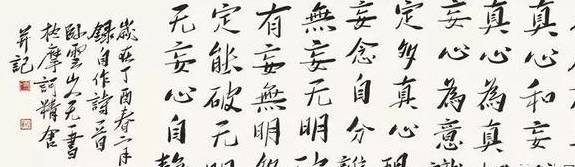 真心和妄
真心為真
妄心為意識
定多真心
妄念自分誰
無妄无明又
有妄無明多
定能破无明
无妄心自
歲在丁酉春二月
錄自作詩一首
臥雲山人无一書
於摩訶精舍
并記